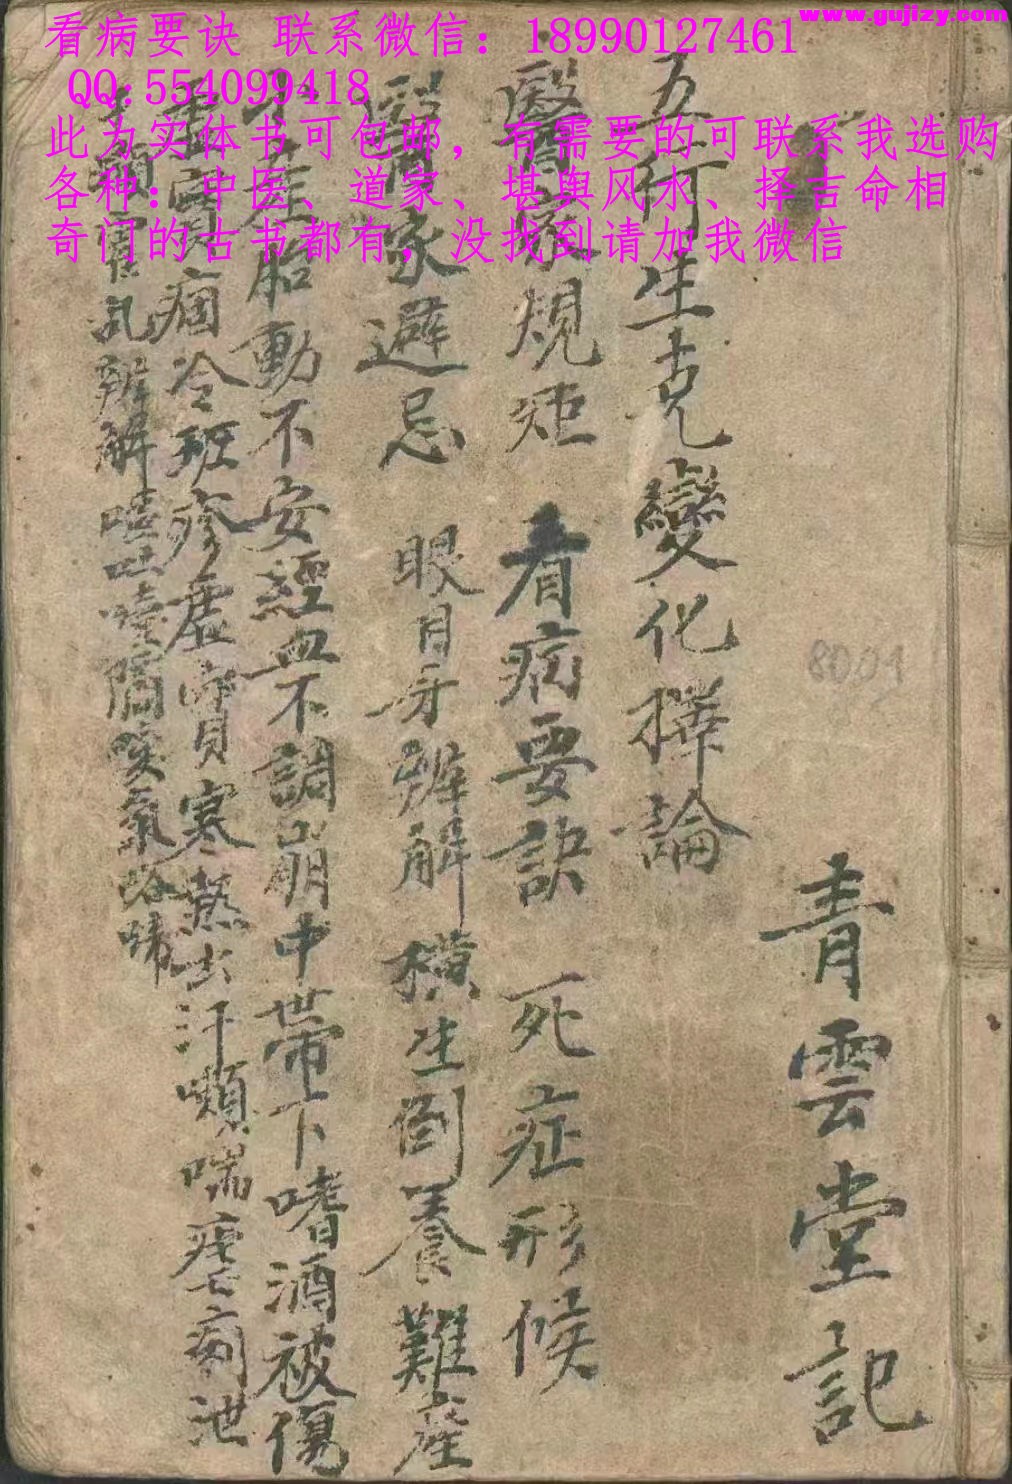 www.gujizy.com
看病要诀 联系微信：18990127461
QQ:554099418
此为实体书可包邮，有需要的可联系我选购
各种：中医、道家、堪舆风水、择吉命相
奇门的古书都有，没找到请加我微信
青雲堂記
8001
五行生克變化擇論
醫家規矩 看病要訣 死症形候
醫家避忌 眼目牙辨解 橫生倒養難產
產胎動不安經血不調崩中帶下嗜酒被傷
痼冷班疹虛實寒熱出汗嗽喘瘧痢泄
辨解嘔吐噎膈